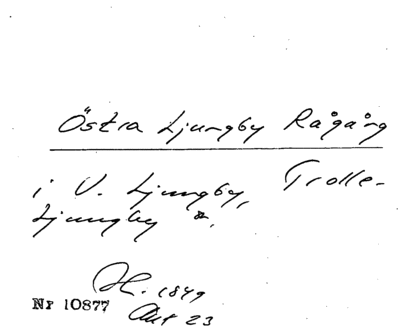 Östra Ljungby Rågång
i V. Ljungby, Trolle-
Ljungby
H. 1849
Nr 10877
Akt 23